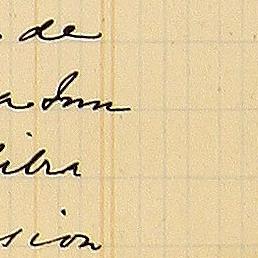 de
a Inn
libra
sion